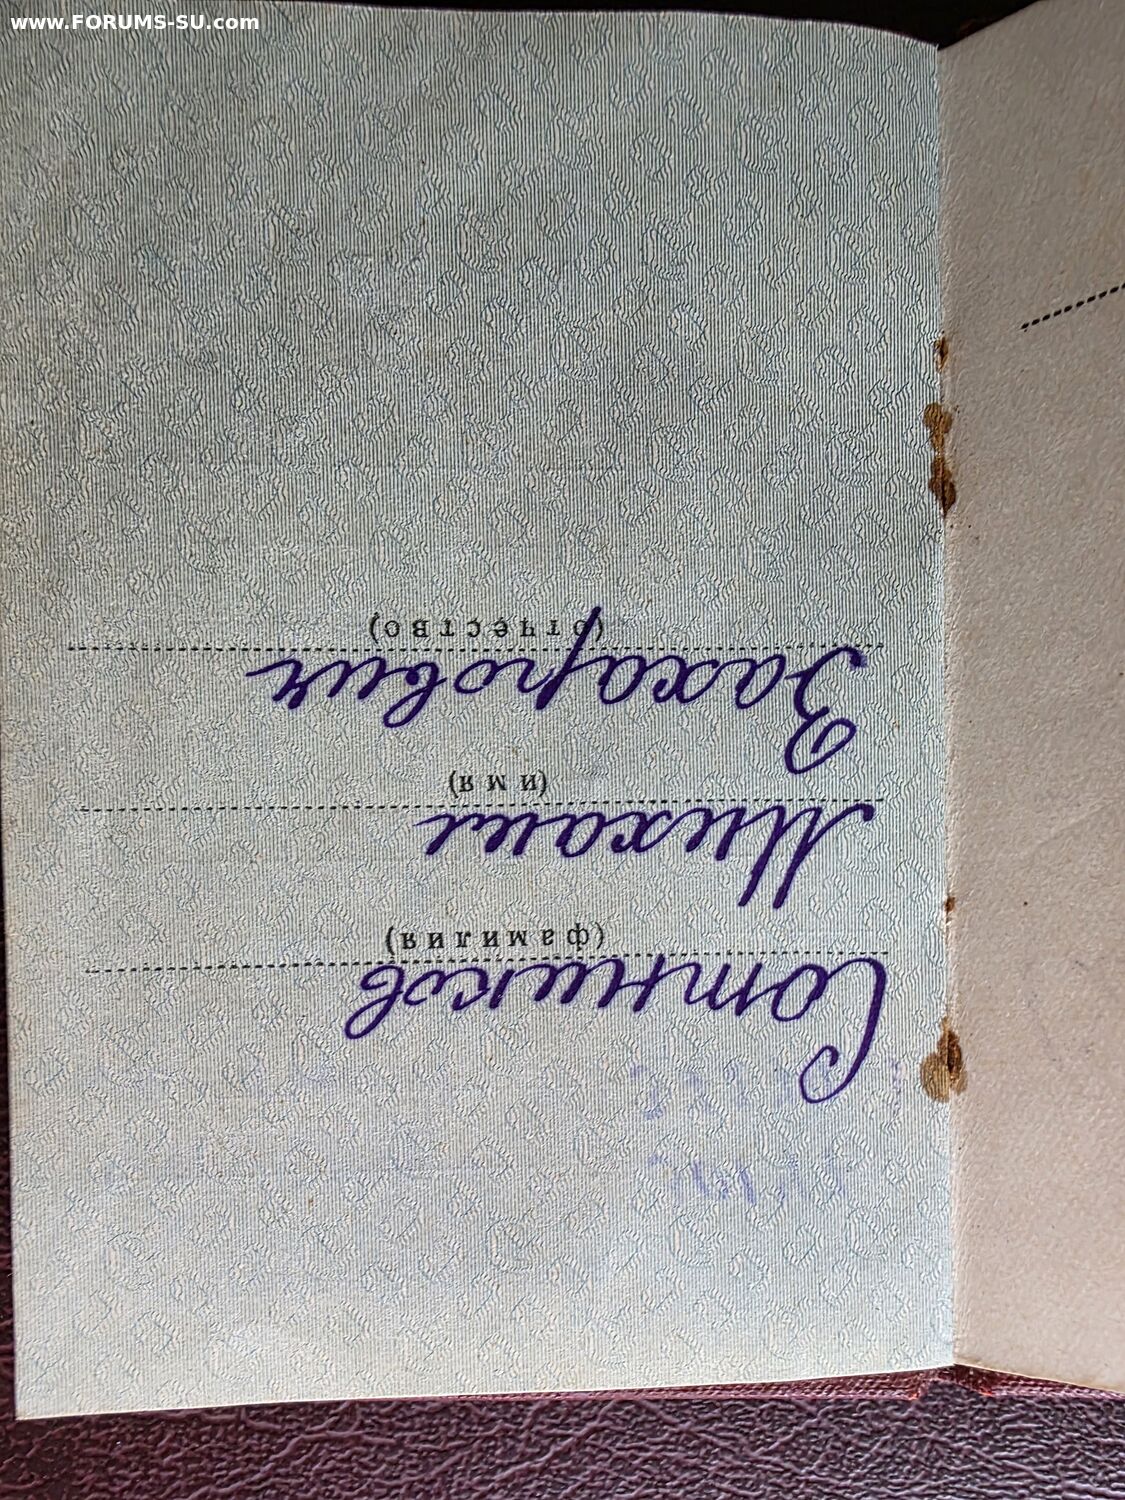 www.FORUMS-SU.com
Сотников
(фамилия)
Михаил
(имя)
Захарович
(отчество)